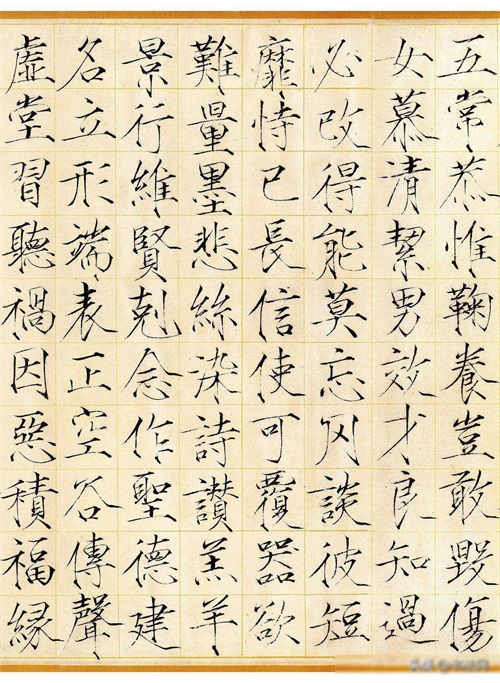 五常恭惟鞠養豈敢毀傷
女慕清絜男效才良知過
必改得能莫忘罔談彼短
靡恃已長信使可覆器欲
難量墨悲絲染詩讚羔羊
景行維賢剋念作聖德建
名立形端表正空谷傳聲
虛堂習聽禍因惡積福緣